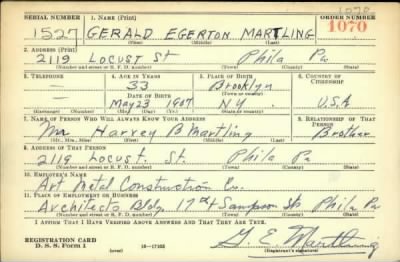 1070
SERIAL NUMBER 1. NAME (Print) ORDER NUMBER
1527 GERALD EGERTON MARTLING 1070
(First) (Middle) (Last)
2. ADDRESS (Print)
2119 Locust St Phila Pa
(Number and street or R. F. D. number) (Town) (County) (State)
3. TELEPHONE 4. AGE IN YEARS 5. PLACE OF BIRTH 6. COUNTRY OF CITIZENSHIP
— 33 Brooklyn
DATE OF BIRTH (Town or county)
— May 23 1907 N.Y. U.S.A
(Exchange) (Number) (Mo.) (Day) (Yr.) (State or country)
7. NAME OF PERSON WHO WILL ALWAYS KNOW YOUR ADDRESS 8. RELATIONSHIP OF THAT PERSON
Mr Harvey B Martling Brother
(Mr., Mrs., Miss) (First) (Middle) (Last)
9. ADDRESS OF THAT PERSON
2119 Locust. St. Phila Pa
(Number and street or R. F. D. number) (Town) (County) (State)
10. EMPLOYER'S NAME
Art Metal Construction Co.
11. PLACE OF EMPLOYMENT OR BUSINESS
Architects Bldg 17th & Sampson Sts Phila Pa
(Number and street or R. F. D. number) (Town) (County) (State)
I AFFIRM THAT I HAVE VERIFIED ABOVE ANSWERS AND THAT THEY ARE TRUE.
REGISTRATION CARD
D. S. S. Form 1 (over) 16—17105 G. E. Martling
(Registrant's signature)